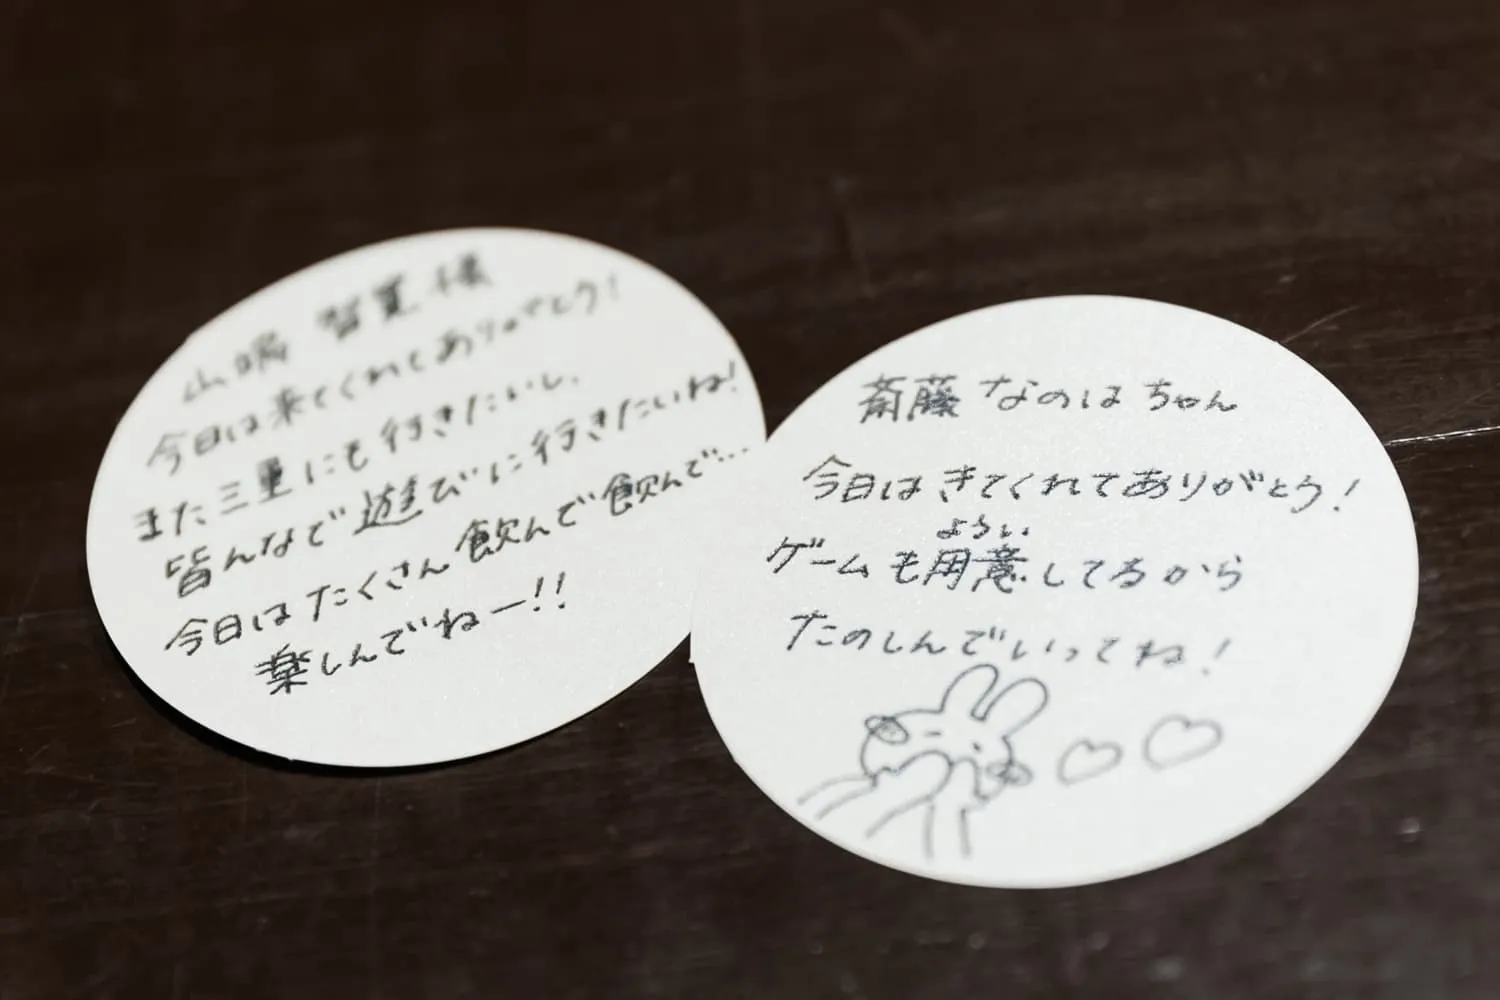 山嵜 智寛 様
今日は来てくれてありがとう!
また三重にも行きたいし、
皆んなで遊びに行きたいね!
今日はたくさん飲んで飲んで…
楽しんでねー!!
斎藤 なのは ちゃん
今日は きてくれてありがとう!
ようい
ゲームも用意してるから
たのしんでいってね!